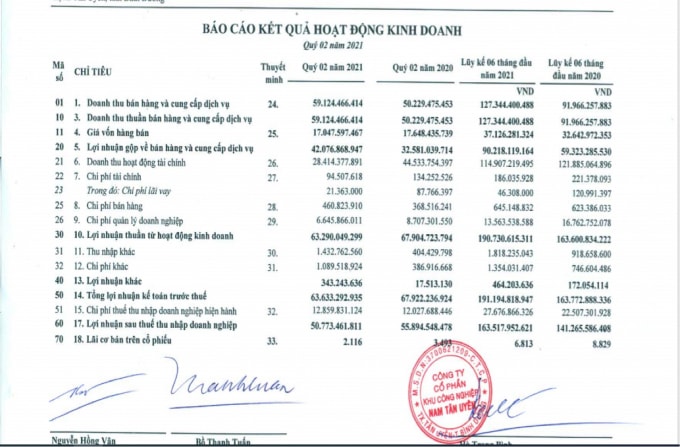 BÁO CÁO KẾT QUẢ HOẠT ĐỘNG KINH DOANH
Quý 02 năm 2021
Mã số CHỈ TIÊU Thuyết minh Quý 02 năm 2021 Quý 02 năm 2020 Lũy kế 06 tháng đầu năm 2021 Lũy kế 06 tháng đầu năm 2020
VND VND
01 1. Doanh thu bán hàng và cung cấp dịch vụ 24. 59.124.466.414 50.229.475.453 127.344.400.488 91.966.257.883
10 3. Doanh thu thuần bán hàng và cung cấp dịch vụ 59.124.466.414 50.229.475.453 127.344.400.488 91.966.257.883
11 4. Giá vốn hàng bán 25. 17.047.597.467 17.648.435.739 37.126.281.324 32.642.972.353
20 5. Lợi nhuận gộp về bán hàng và cung cấp dịch vụ 42.076.868.947 32.581.039.714 90.218.119.164 59.323.285.530
21 6. Doanh thu hoạt động tài chính 26. 28.414.377.891 44.533.754.397 114.907.219.495 121.885.064.896
22 7. Chi phí tài chính 27. 94.507.618 134.252.526 186.035.928 221.378.093
23 Trong đó: Chi phí lãi vay 21.363.000 87.766.397 46.308.000 120.991.397
25 8. Chi phí bán hàng 28. 460.823.910 368.516.241 645.148.832 623.386.033
26 9. Chi phí quản lý doanh nghiệp 29. 6.645.866.011 8.707.301.550 13.563.538.588 16.762.752.078
30 10. Lợi nhuận thuần từ hoạt động kinh doanh 63.290.049.299 67.904.723.794 190.730.615.311 163.600.834.222
31 11. Thu nhập khác 30. 1.432.762.560 404.429.798 1.818.235.043 918.658.600
32 12. Chi phí khác 31. 1.089.518.924 386.916.668 1.354.031.407 746.604.486
40 13. Lợi nhuận khác 343.243.636 17.513.130 464.203.636 172.054.114
50 14. Tổng lợi nhuận kế toán trước thuế 63.633.292.935 67.922.236.924 191.194.818.947 163.772.888.336
51 15. Chi phí thuế thu nhập doanh nghiệp hiện hành 32. 12.859.831.124 12.027.688.446 27.676.866.326 22.507.301.928
60 17. Lợi nhuận sau thuế thu nhập doanh nghiệp 50.773.461.811 55.894.548.478 163.517.952.621 141.265.586.408
70 18. Lãi cơ bản trên cổ phiếu 33. 2.116 3.493 6.813 8.829
M.S.D.N:3700621209-C.T.C.P
CÔNG TY
CỔ PHẦN
KHU CÔNG NGHIỆP
NAM TÂN UYÊN
TX.TÂN UYÊN-T.BÌNH DƯƠNG
Nguyễn Hồng Vân Bồ Thanh Tuấn